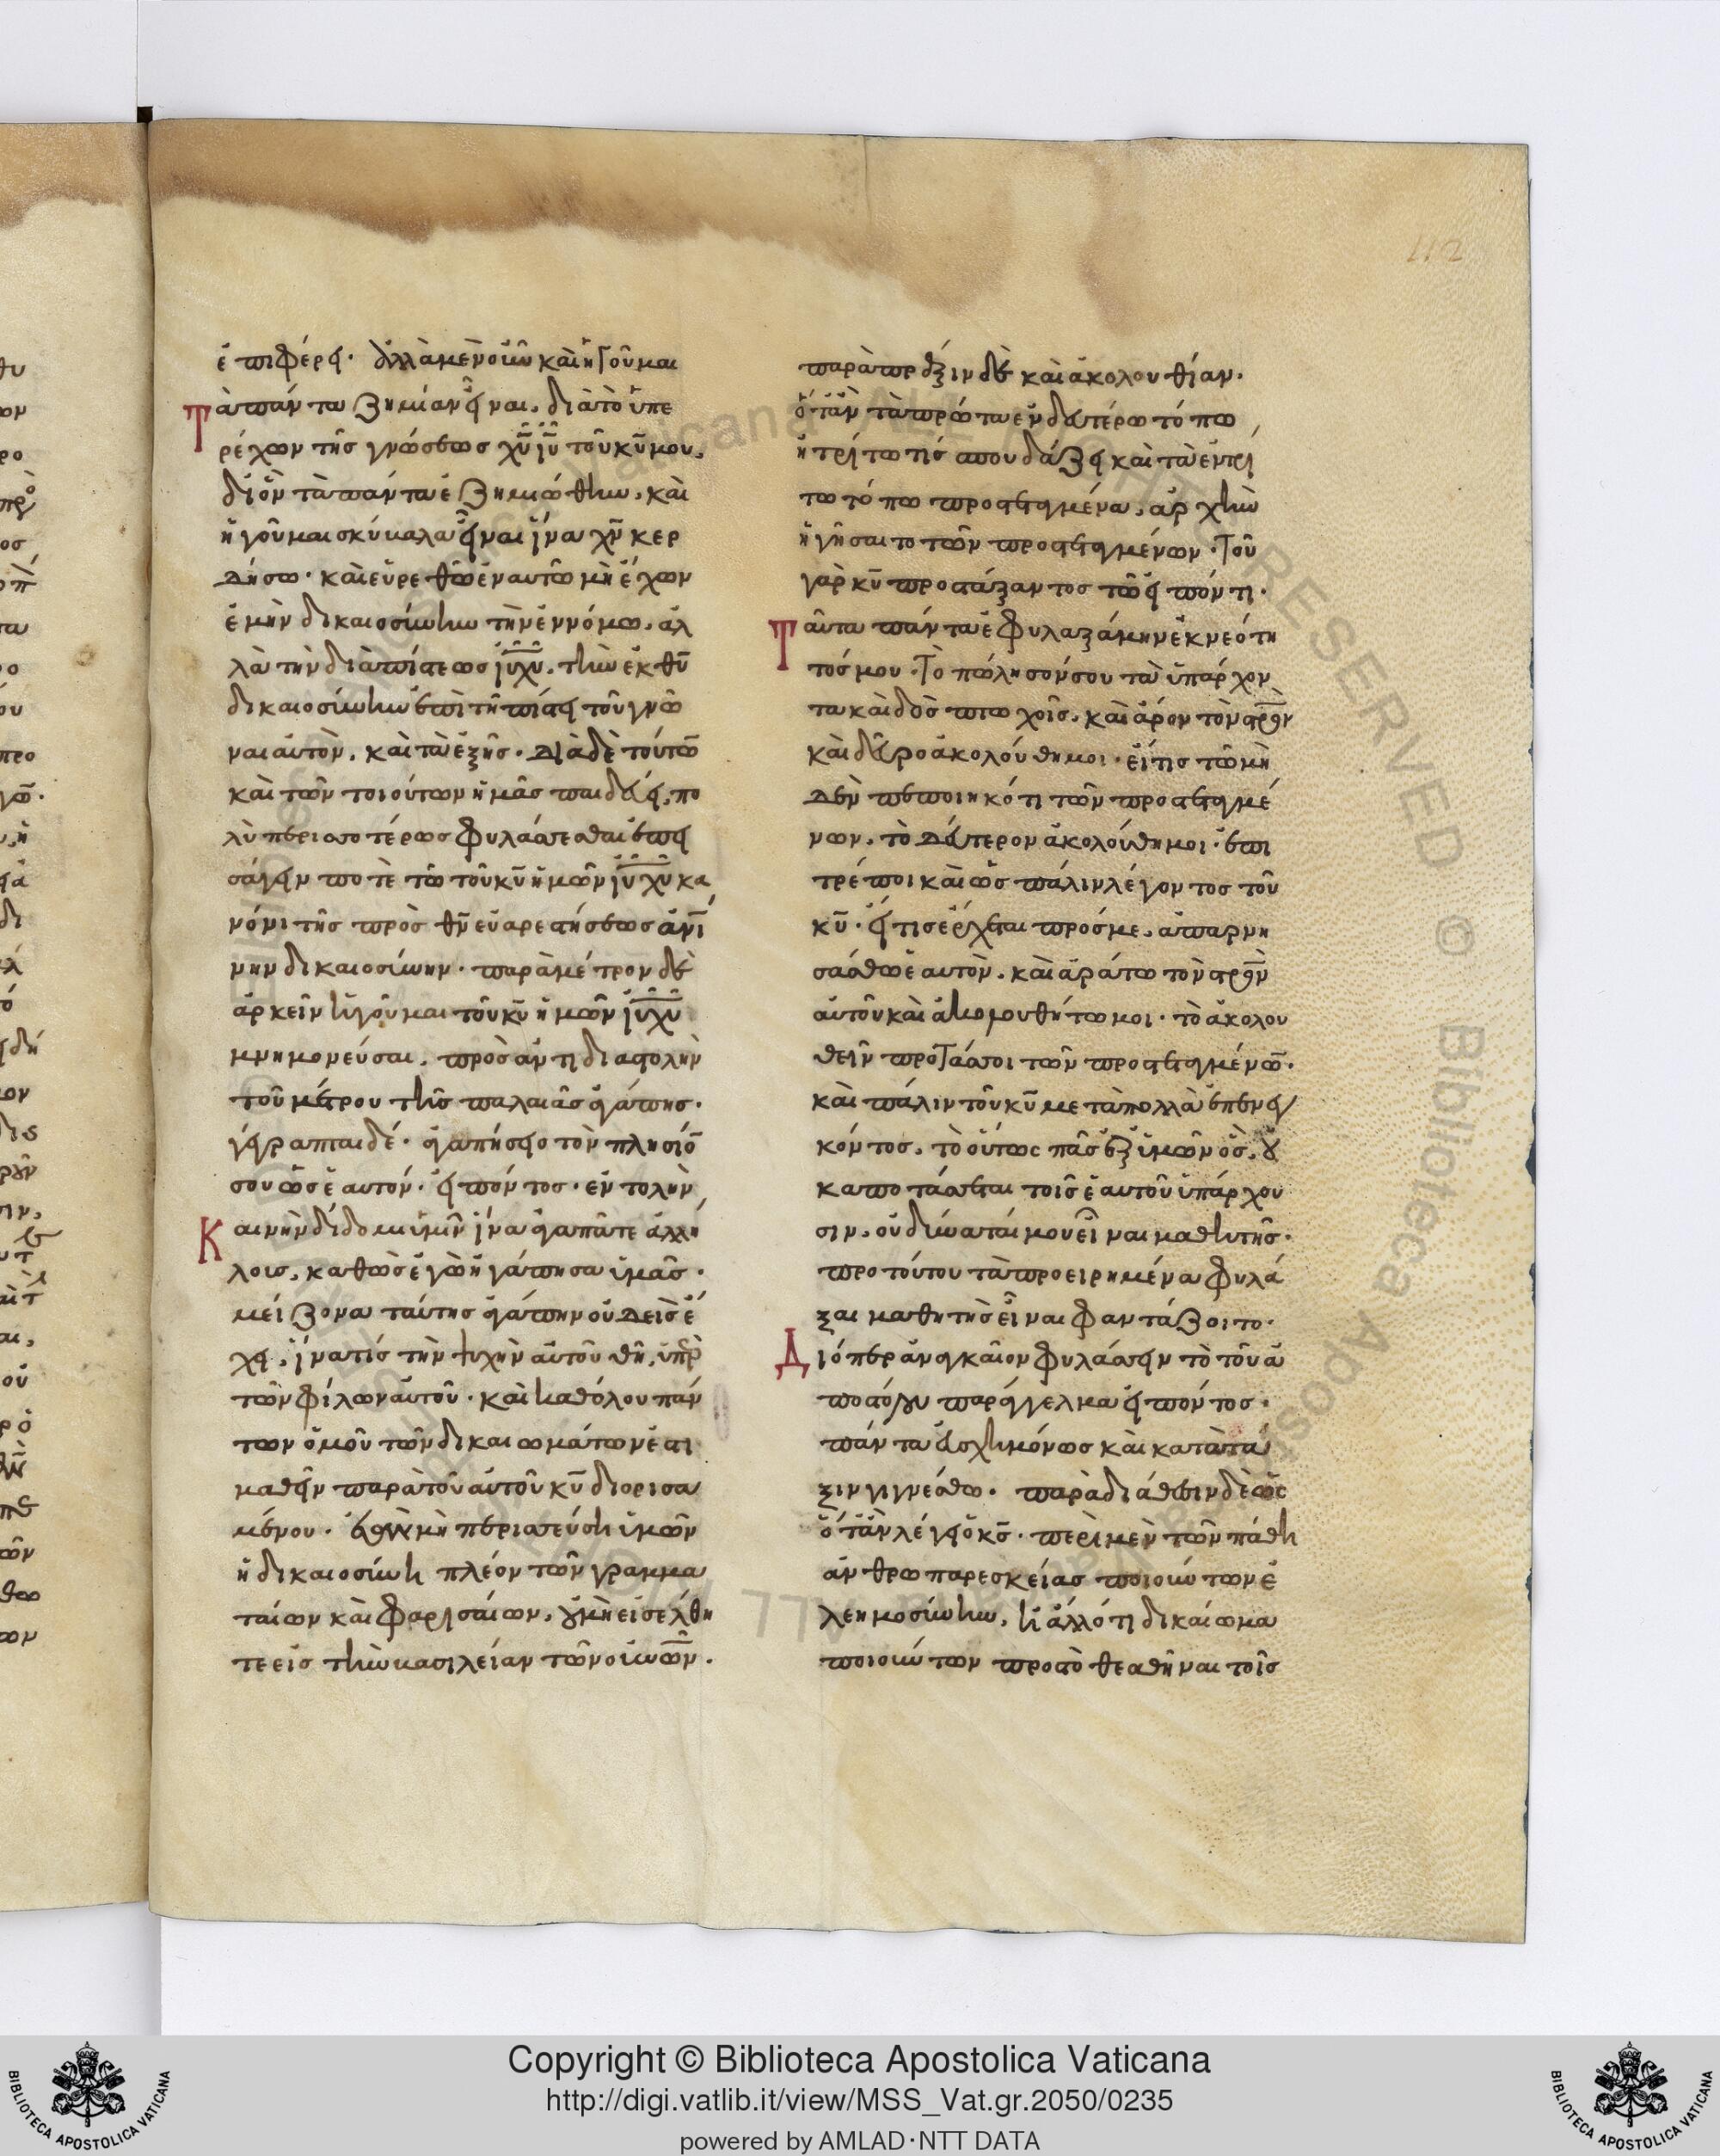 ἐπιφέρει· ἀλλὰ μὲν οὖν καὶ ἡγοῦμαι
Τὰ πάντα ζημίαν εἶναι, διὰ τὸ ὑπε
ρέχων τῆς γνώσεως χῦ ἰῦ τοῦ κῦ μου,
δι ὃν τὰ πάντα ἐζημιώθην, καὶ
ἡγοῦμαι σκύβαλα εἶναι ἵνα χν κερ
δήσω· καὶ εὑρεθῶ ἐν αυτῶ μὴ ἔχων
ἐμὴν δικαιοσύνην τὴν ἐν νόμω, ἀλ
λὰ τὴν διὰ πίστεως ἰῦ χῦ, τὴν ἐκ θῦ
δικαιοσύνην ἐπὶ τῆ πίστει τοῦ γνῶ
ναι αὐτὸν, καὶ τὰ ἑξῆς· Διὰ δὲ τούτω̅
καὶ τῶν τοιούτων ἡμᾶς παιδεύει, πο
λὺ περισσοτέρως φυλάσσεσθαι ἐπει
σάγειν ποτὲ τῶ τοῦ κῦ ἡμῶν ἰῦ χῦ κα
νόνι τῆς πρὸς θν εὐαρεστήσεως
δικαιοσύνην· παρὰ μέτρον δὲ
ἀρκεῖν ἡγοῦμαι τοῦ κῦ ἡμῶν ἰῦ χῦ
μνημονεύσαι, πρὸς ἀντιδιαστολὴν
τοῦ μέτρου τῆς παλαιᾶς ἀγάπης·
γέγραπται δέ· ἀγαπήσεις τὸν πλησίο̅
σου ὡς ἑαυτόν· εἰπόντος· ἐντολὴν
Καινὴν δίδομι ὑμῖν ἵνα ἀγαπᾶτε ἀλλή
λοις, καθὼς ἐγὼ ἠγάπησα ὑμᾶς·
μείζονα ταύτης ἀγάπην οὐδεὶς ἔ
χει, ἵνα τίς τὴν ψυχὴν αὐτοῦ θῆ, ὑπὲρ
τῶν φίλων αὐτοῦ· καὶ καθόλου πάν
των ὁμοῦ τῶν δικαιωμάτων ἔστι
μαθεῖν παρὰ τοῦ αὐτοῦ κῦ διορισα
μένου· ἐὰν μὴ περισσεύση ὑμῶν
ἡ δικαιοσύνη πλέον τῶν γραμμα
ταίων καὶ φαρισαίων, οὐ μὴ εἰσέλθη
τε εἰς τὴν βασιλείαν τῶν οὐνῶν·
παρὰ πρᾶξιν δὲ καὶ ἀκολουθίαν·
ὅταν τὰ πρῶτα ἐν δευτέρω τόπω
ἢ τρίτω τίς σπουδάζει καὶ τὰ ἐν τρί
τω τόπω προστεταγμένα, ἀρχὴν
ἡγήσαιτο τῶν προστεταγμένων· Τοῦ
γὰρ κῦ προστάξαντος τῶ εἰπόντι·
Ταῦτα πάντα ἐφυλαξάμην ἐκ νεότη
τός μου· Τὸ πώλησόν σου τὰ ὑπάρχον
τα καὶ δὸς πτωχοῖς, καὶ ἆρον τὸν στρον
καὶ δεῦρο ἀκολούθη μοι· εἴ τις τῶ μη
δὲν πεποιηκότι τῶν προστεταγμέ
νων, τὸ δεύτερον ἀκολούθη μοι· ἐπι
τρέποι καὶ ὡς πάλιν λέγοντος τοῦ
κῦ· εἴ τις ἔρχεται πρός με, ἀπαρνη
σάσθω ἑαυτὸν, καὶ ἀράτω τὸν στρον
αὐτοῦ καὶ ἀκολουθήτω μοι· τὸ ἀκολου
θεῖν προτάσσοι τῶν προστεταγμένω̅·
καὶ πάλιν τοῦ κῦ μετὰ πολλὰ ἐπενεγ
κόντος, τὸ οὕτως πᾶς ἐξ ὑμῶν ὃς, οὐ
κ αποτάσσεται τοῖς ἑαυτοῦ ὑπάρχου
σιν, οὐ δύναταί μου εἶναι μαθητῆς·
πρὸ τούτου τὰ προειρημένα φυλά
ξαι μαθητὴς εἶναι φαντάζοιτο·
Διόπερ ἀναγκαῖον φυλάσσειν τὸ τοῦ ἀ
ποστόλου παράγγελμα εἰπόντος·
πάντα εὐσχημόνως καὶ κατὰ τά
ξιν γιγνέσθω· παρὰ διάθεσιν δὲ ὡς
ὅταν λέγει ὁ κς· περὶ μὲν τῶν πάθη
ἀνθρωπαρεσκείας ποιούντων ἐ
λεημοσύνην, ἢ ἄλλό τι δικαίωμα
ποιούντων πρὸς τὸ θεαθῆναι τοῖς
112
Copyright © Biblioteca Apostolica Vaticana
http://digi.vatlib.it/view/MSS_Vat.gr.2050/0235
powered by AMLAD·NTT DATA
BIBLIOTECA APOSTOLICA VATICANA
BIBLIOTECA APOSTOLICA VATICANA